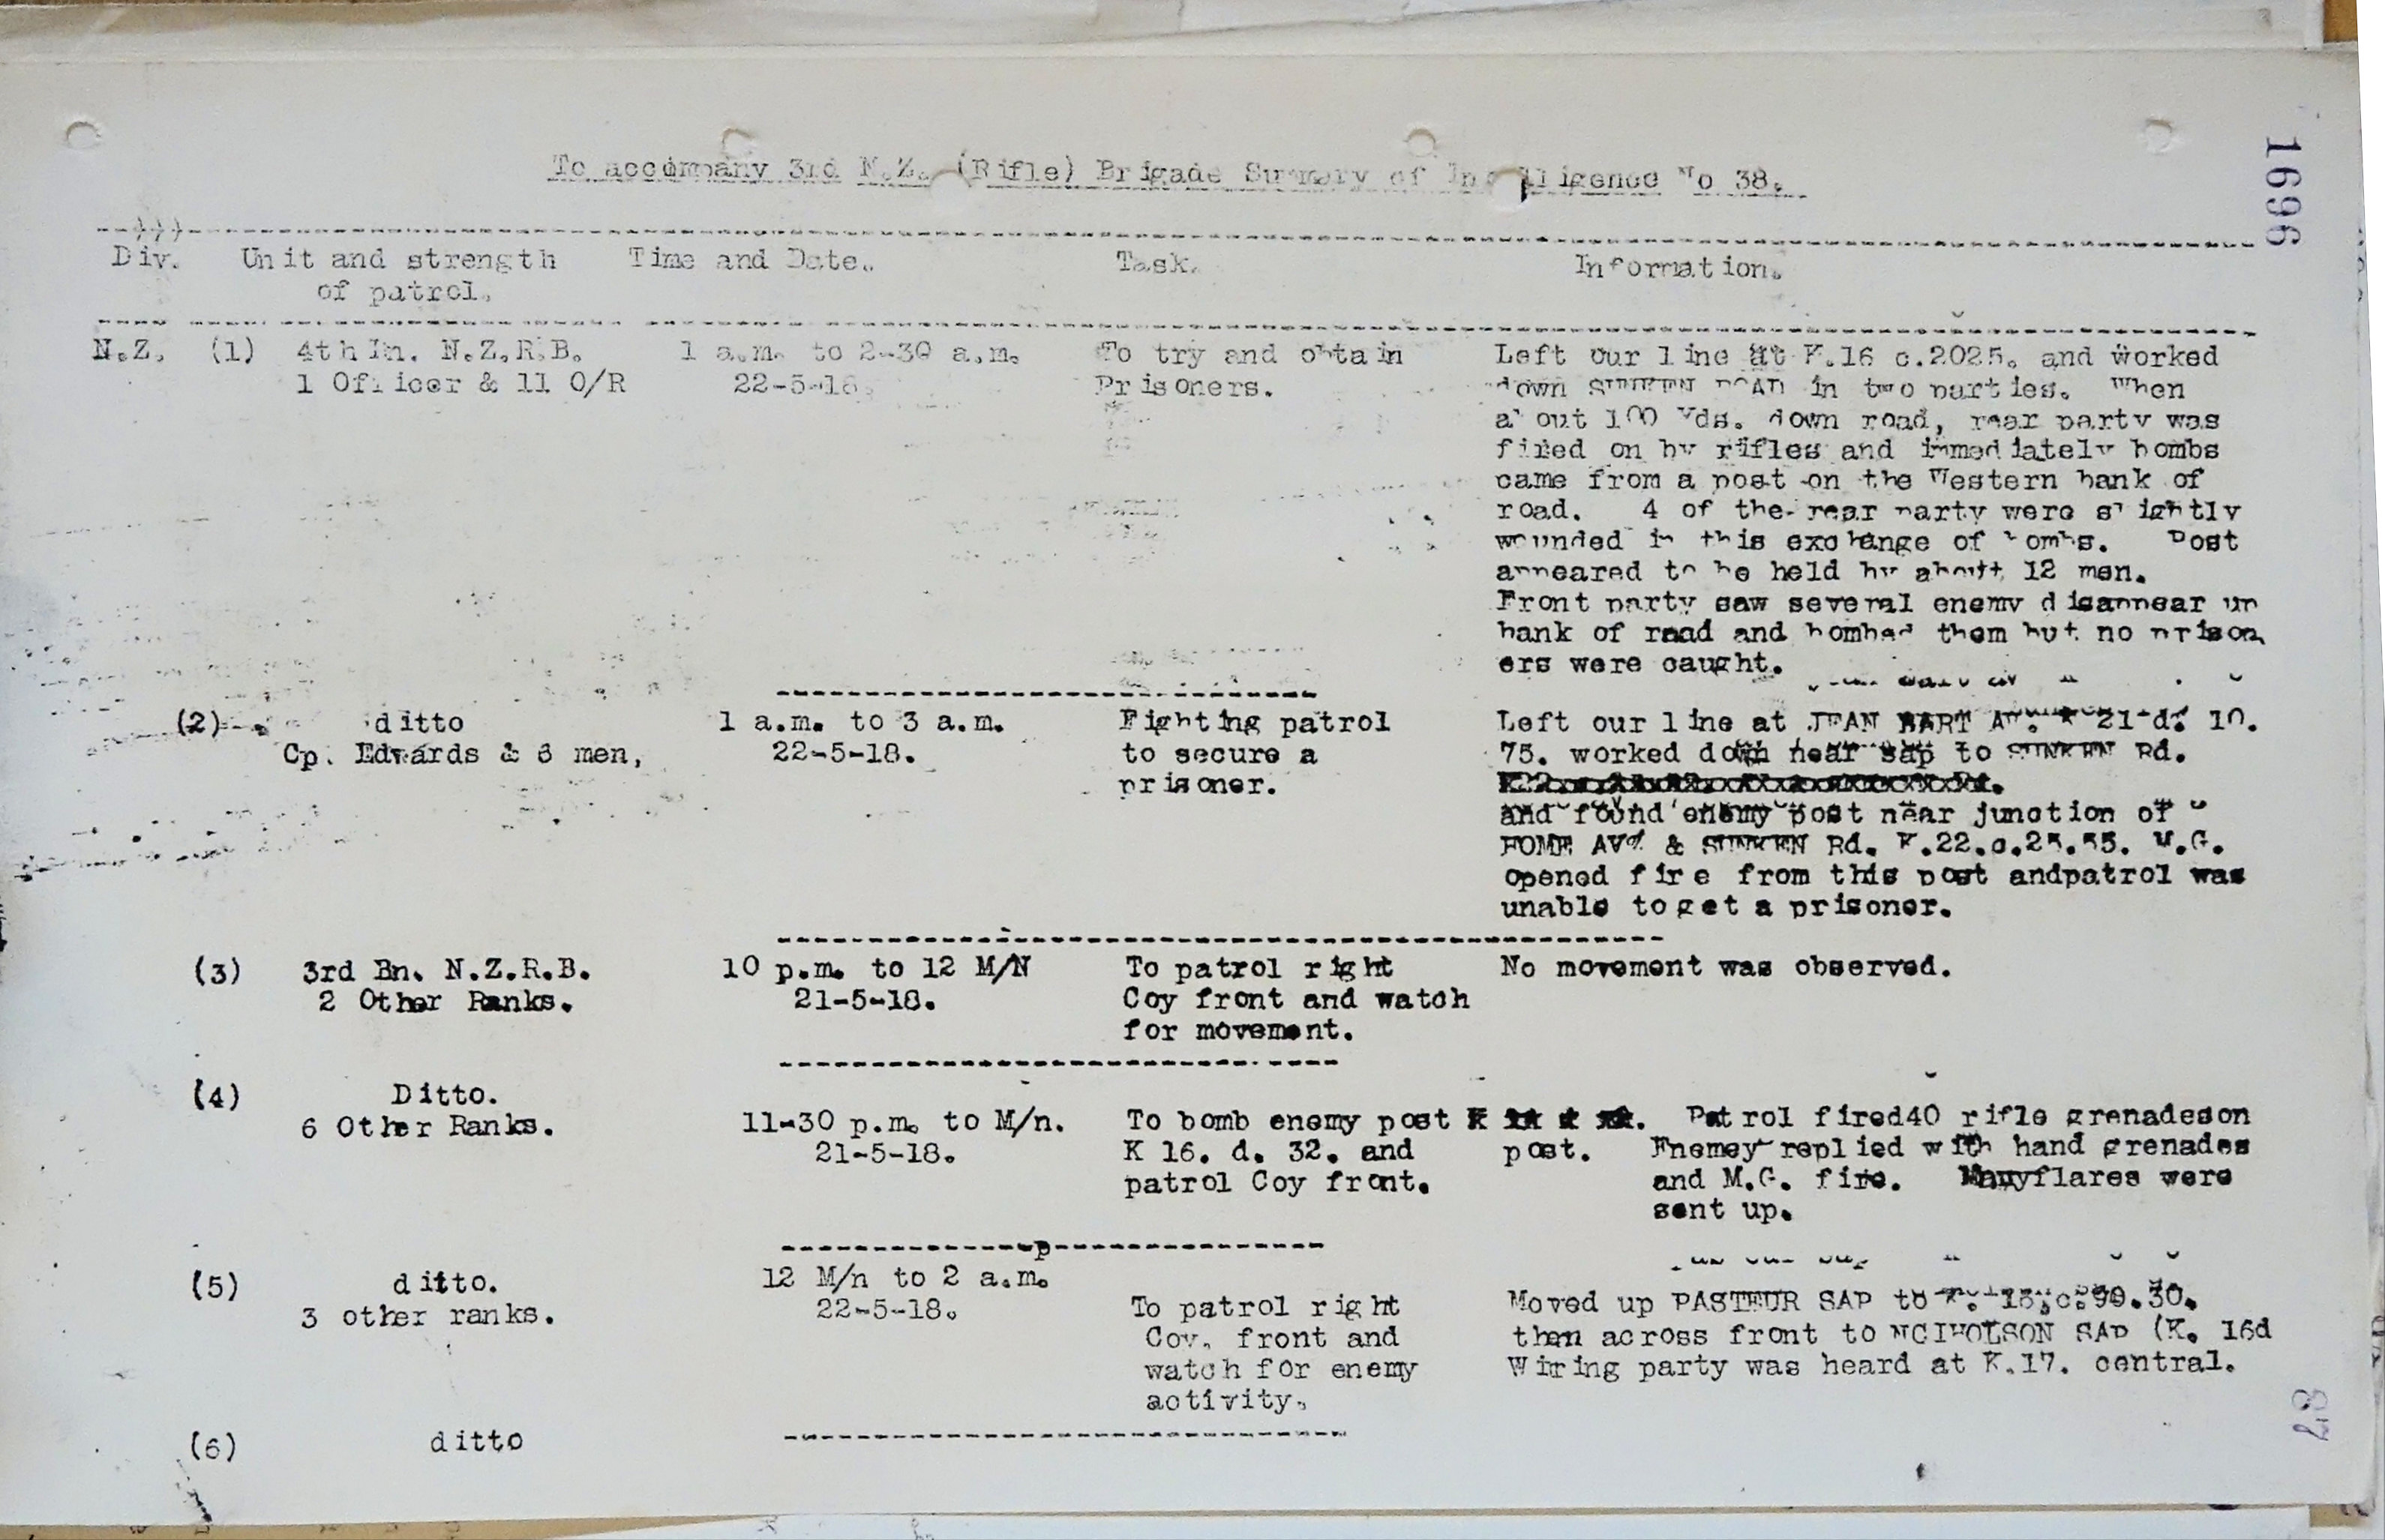 To accompany 3rd N.Z. (Rifle) Brigade Summary of Intelligence No 38.
1696
Div. Unit and strength Time and Date. Task. Information.
of patrol.
N.Z. (1) 4th Bn. N.Z.R.B. 1 a.m. to 2-30 a.m. To try and obtain Left our line at K.16 c.2025. and worked
1 Officer & 11 O/R 22-5-18. Prisoners. down SUNKEN ROAD in two parties. When
about 100 Yds. down road, rear party was
fired on by rifles and immediately bombs
came from a post on the Western bank of
road. 4 of the rear party were slightly
wounded in this exchange of bombs. Post
appeared to be held by about 12 men.
Front party saw several enemy disappear up
bank of road and bombed them but no prison
ers were caught.
(2) ditto 1 a.m. to 3 a.m. Fighting patrol Left our line at JEAN BART 21 d. 10.
Cp. Edwards & 6 men, 22-5-18. to secure a 75. worked down near sap to SUNKEN Rd.
prisoner.
and found enemy post near junction of
HOME AV. & SUNKEN Rd. K.22.c.25.55. M.G.
opened fire from this post andpatrol was
unable toget a prisoner.
(3) 3rd Bn. N.Z.R.B. 10 p.m. to 12 M/N To patrol right No movement was observed.
2 Other Ranks. 21-5-18. Coy front and watch
for movement.
(4) Ditto.
6 Other Ranks. 11-30 p.m. to M/n. To bomb enemy post Patrol fired40 rifle grenadeson
21-5-18. K 16. d. 32. and post. Enemey replied with hand grenades
patrol Coy front. and M.G. fire. Manyflares were
sent up.
(5) ditto. 12 M/n to 2 a.m.
3 other ranks. 22-5-18. To patrol right Moved up PASTEUR SAP to 99.30.
Coy. front and then across front to NCIHOLSON SAP (K. 16d
watch for enemy Wiring party was heard at K.17. central.
activity.
(6) ditto